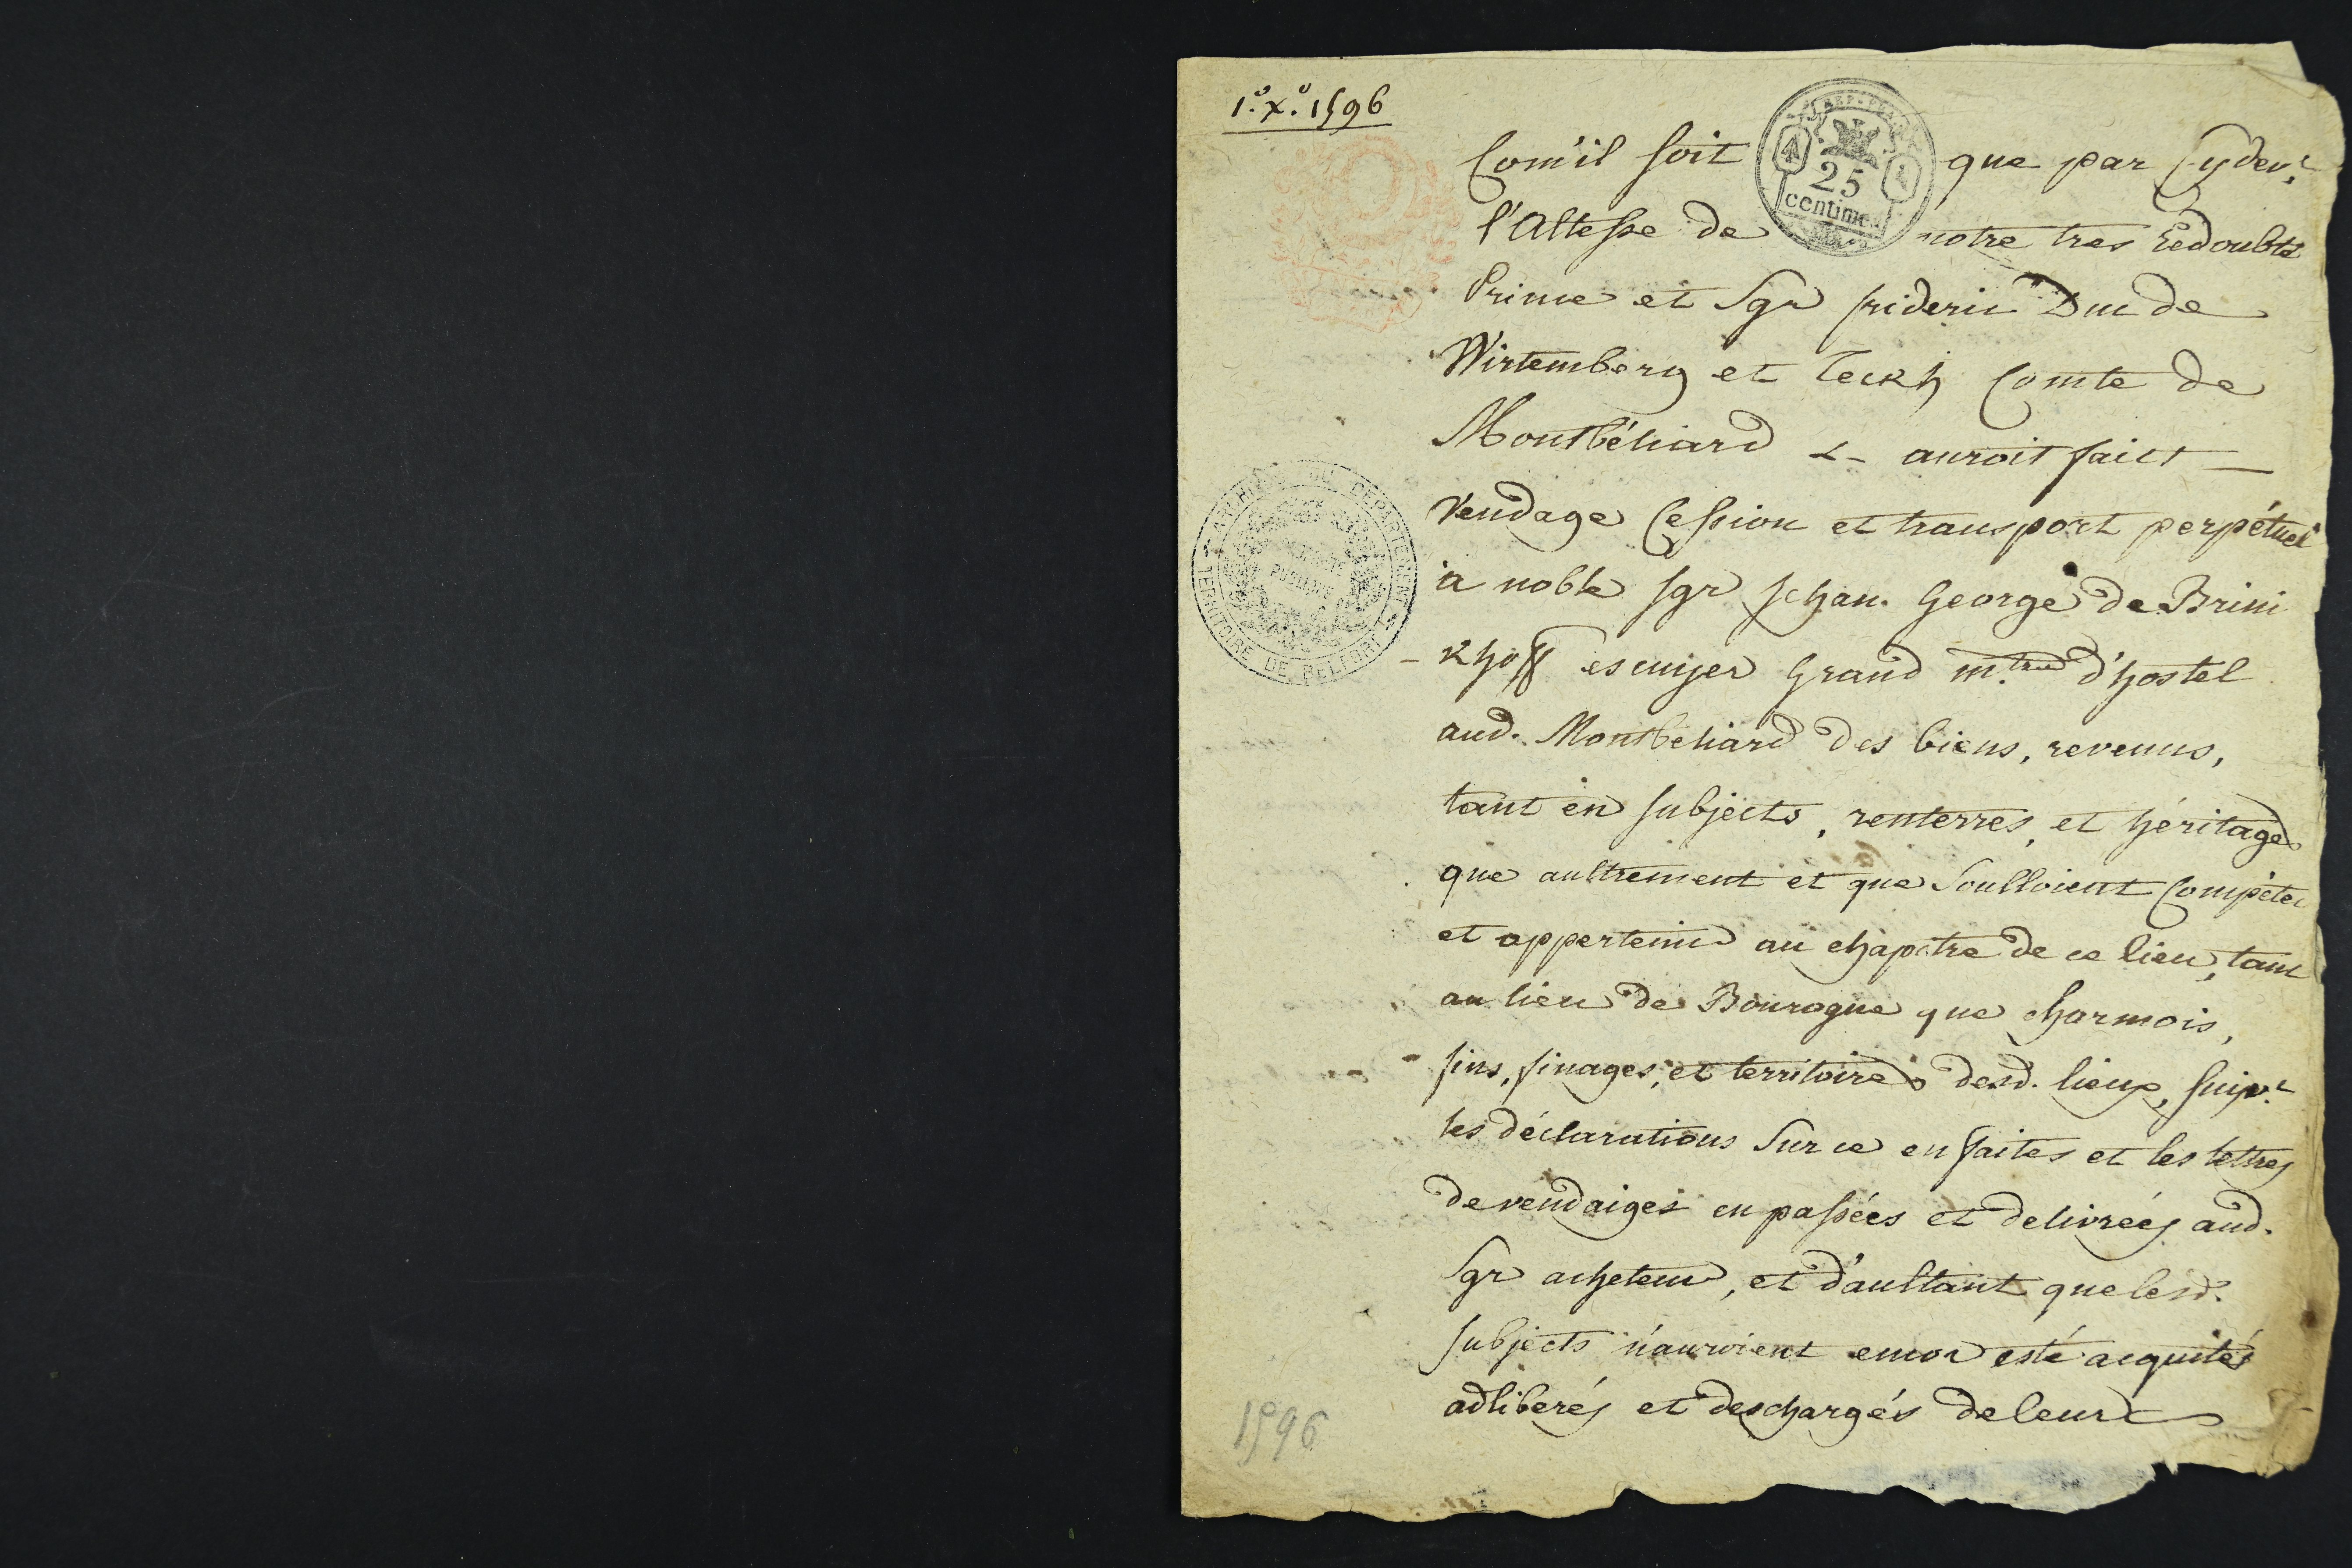 1.° x.° 1596
Com'il soit que par Cydev.t
25
centimes
l'Altesse de notre tres redoubté
Prince et Sgr frideric Duc de
Wirtemberg et Teckh Comte de
Montbéliard &- auroit faict
Vendage Cession et transport perpétuel
a noble sgr Jehan George de Brini
-khoff escuyer Grand m.tre d'hostel
aud. Montbeliard des biens, revenus,
tant en subjects, renterres, et héritages
que aultrement et que Soulloient Compéter
et appertenir au chapitre de ce lieu, tant
au lieu de Bourogne que Charmois,
fins, finages, et territoires desd. lieux, suiv.t
les déclarations Sur ce en faites et les lettres
de vendaiges en passées et delivrées aud.
Sgr acheteur, et d'aultant que lesd.
subjects n'auroient encor esté acquités
adliberés et deschargés de leurs
ARCHIVES DU DEPARTEMENT
TERRITOIRE DE BELFORT
1596